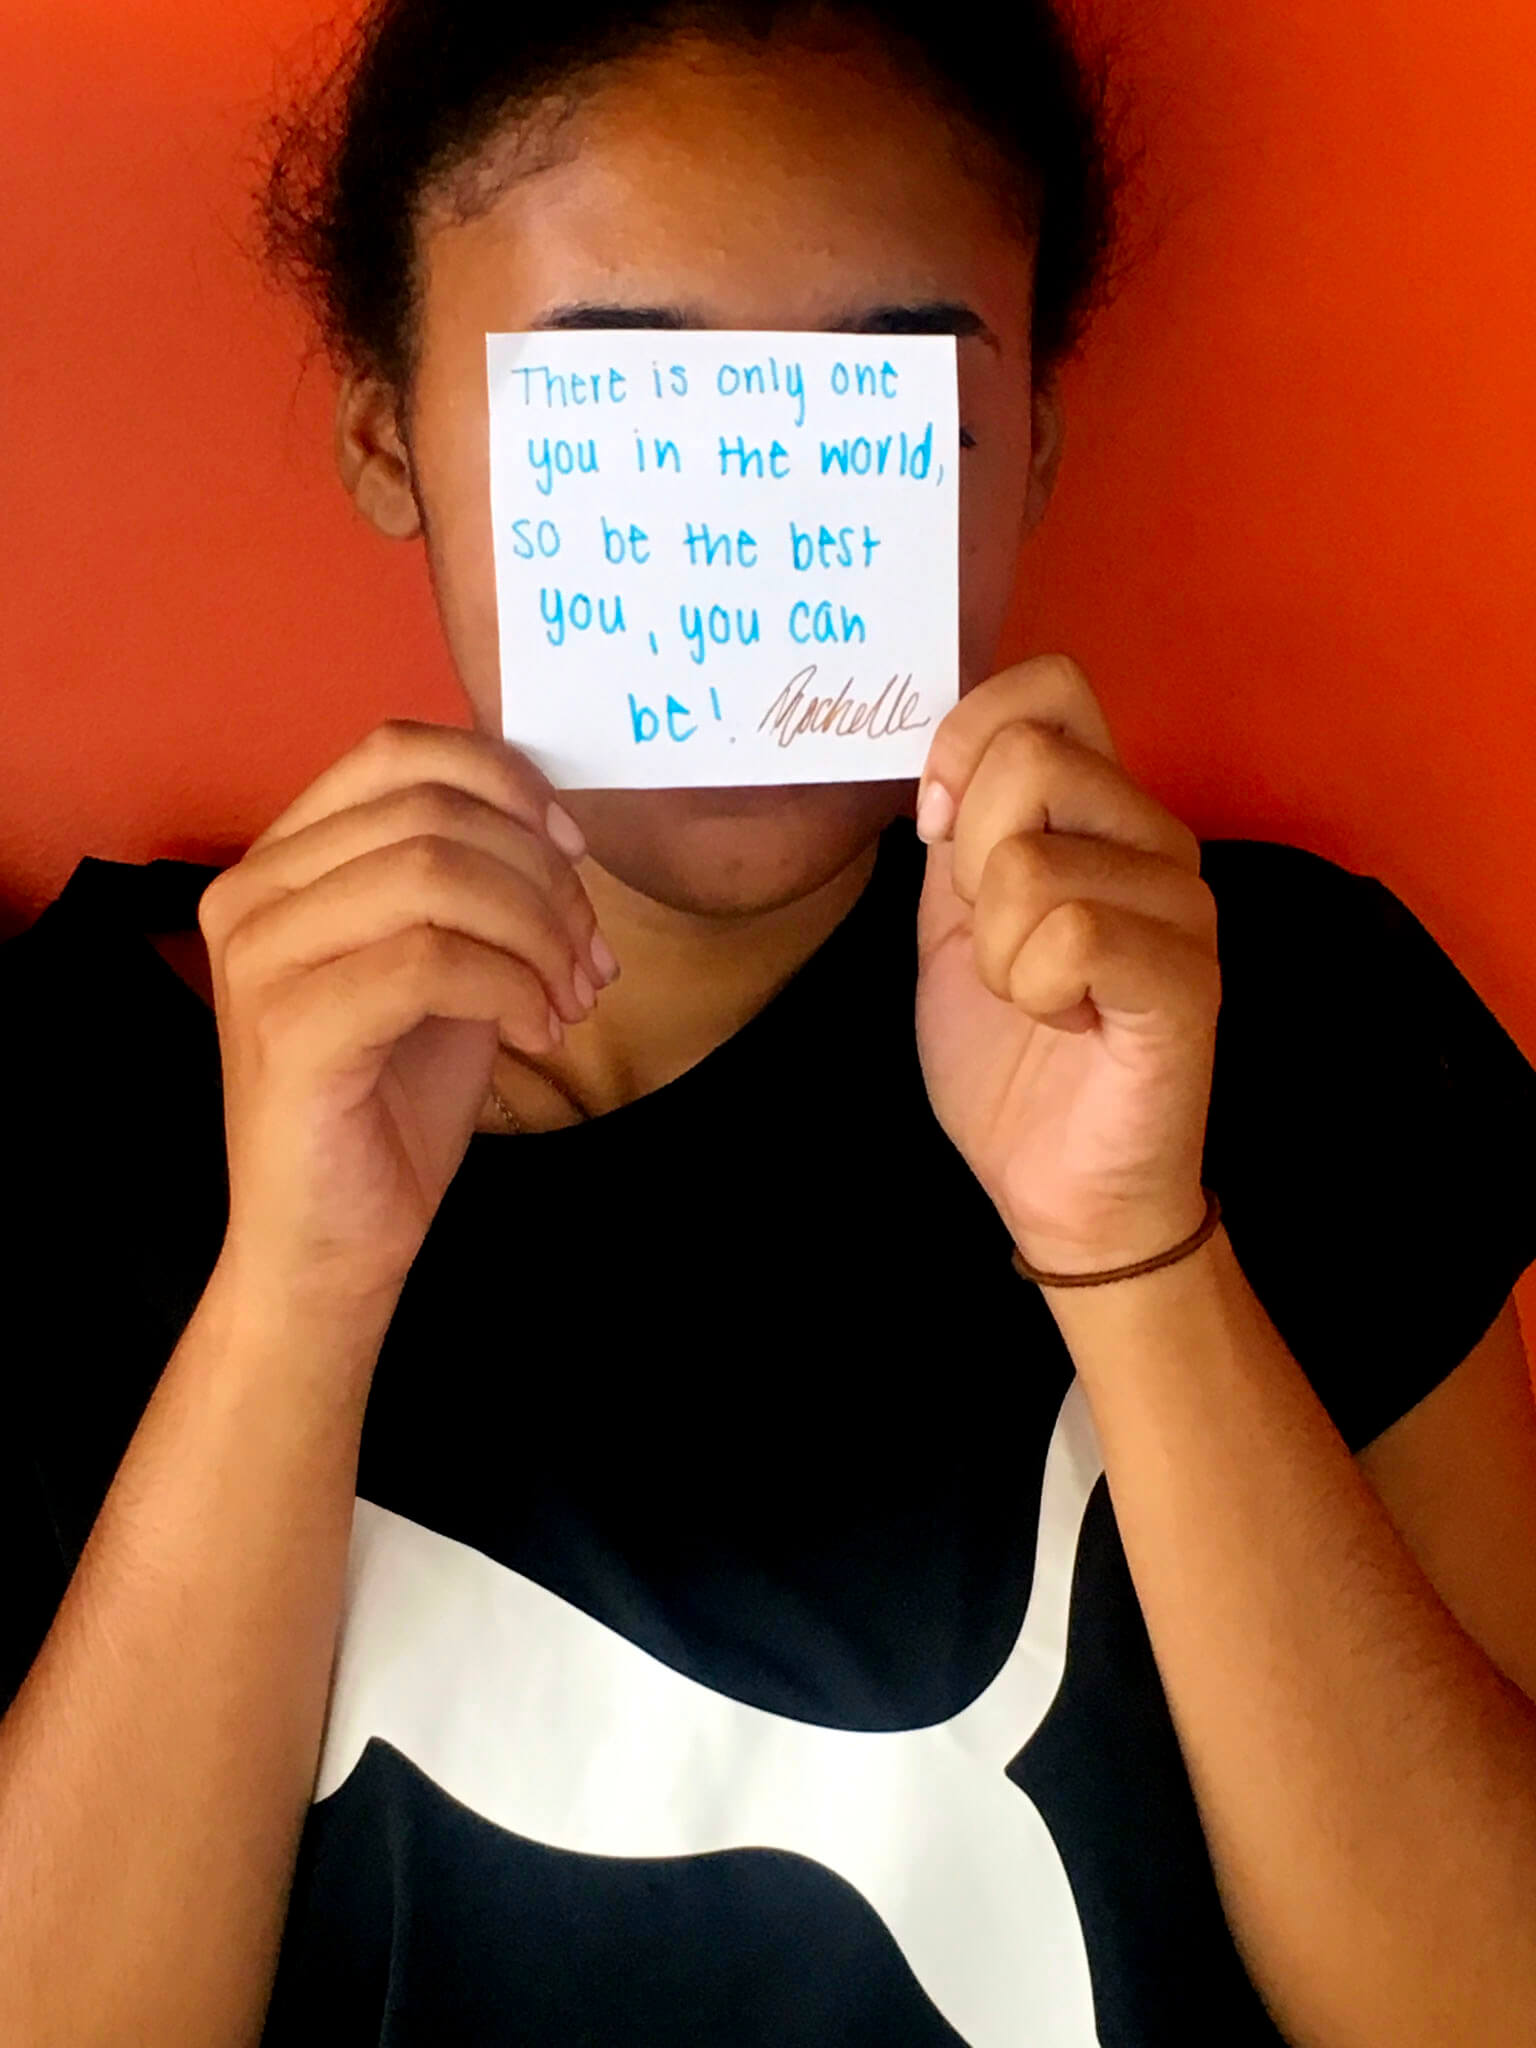 There is only one
you in the world,
so be the best
you, you can
be! Rochelle